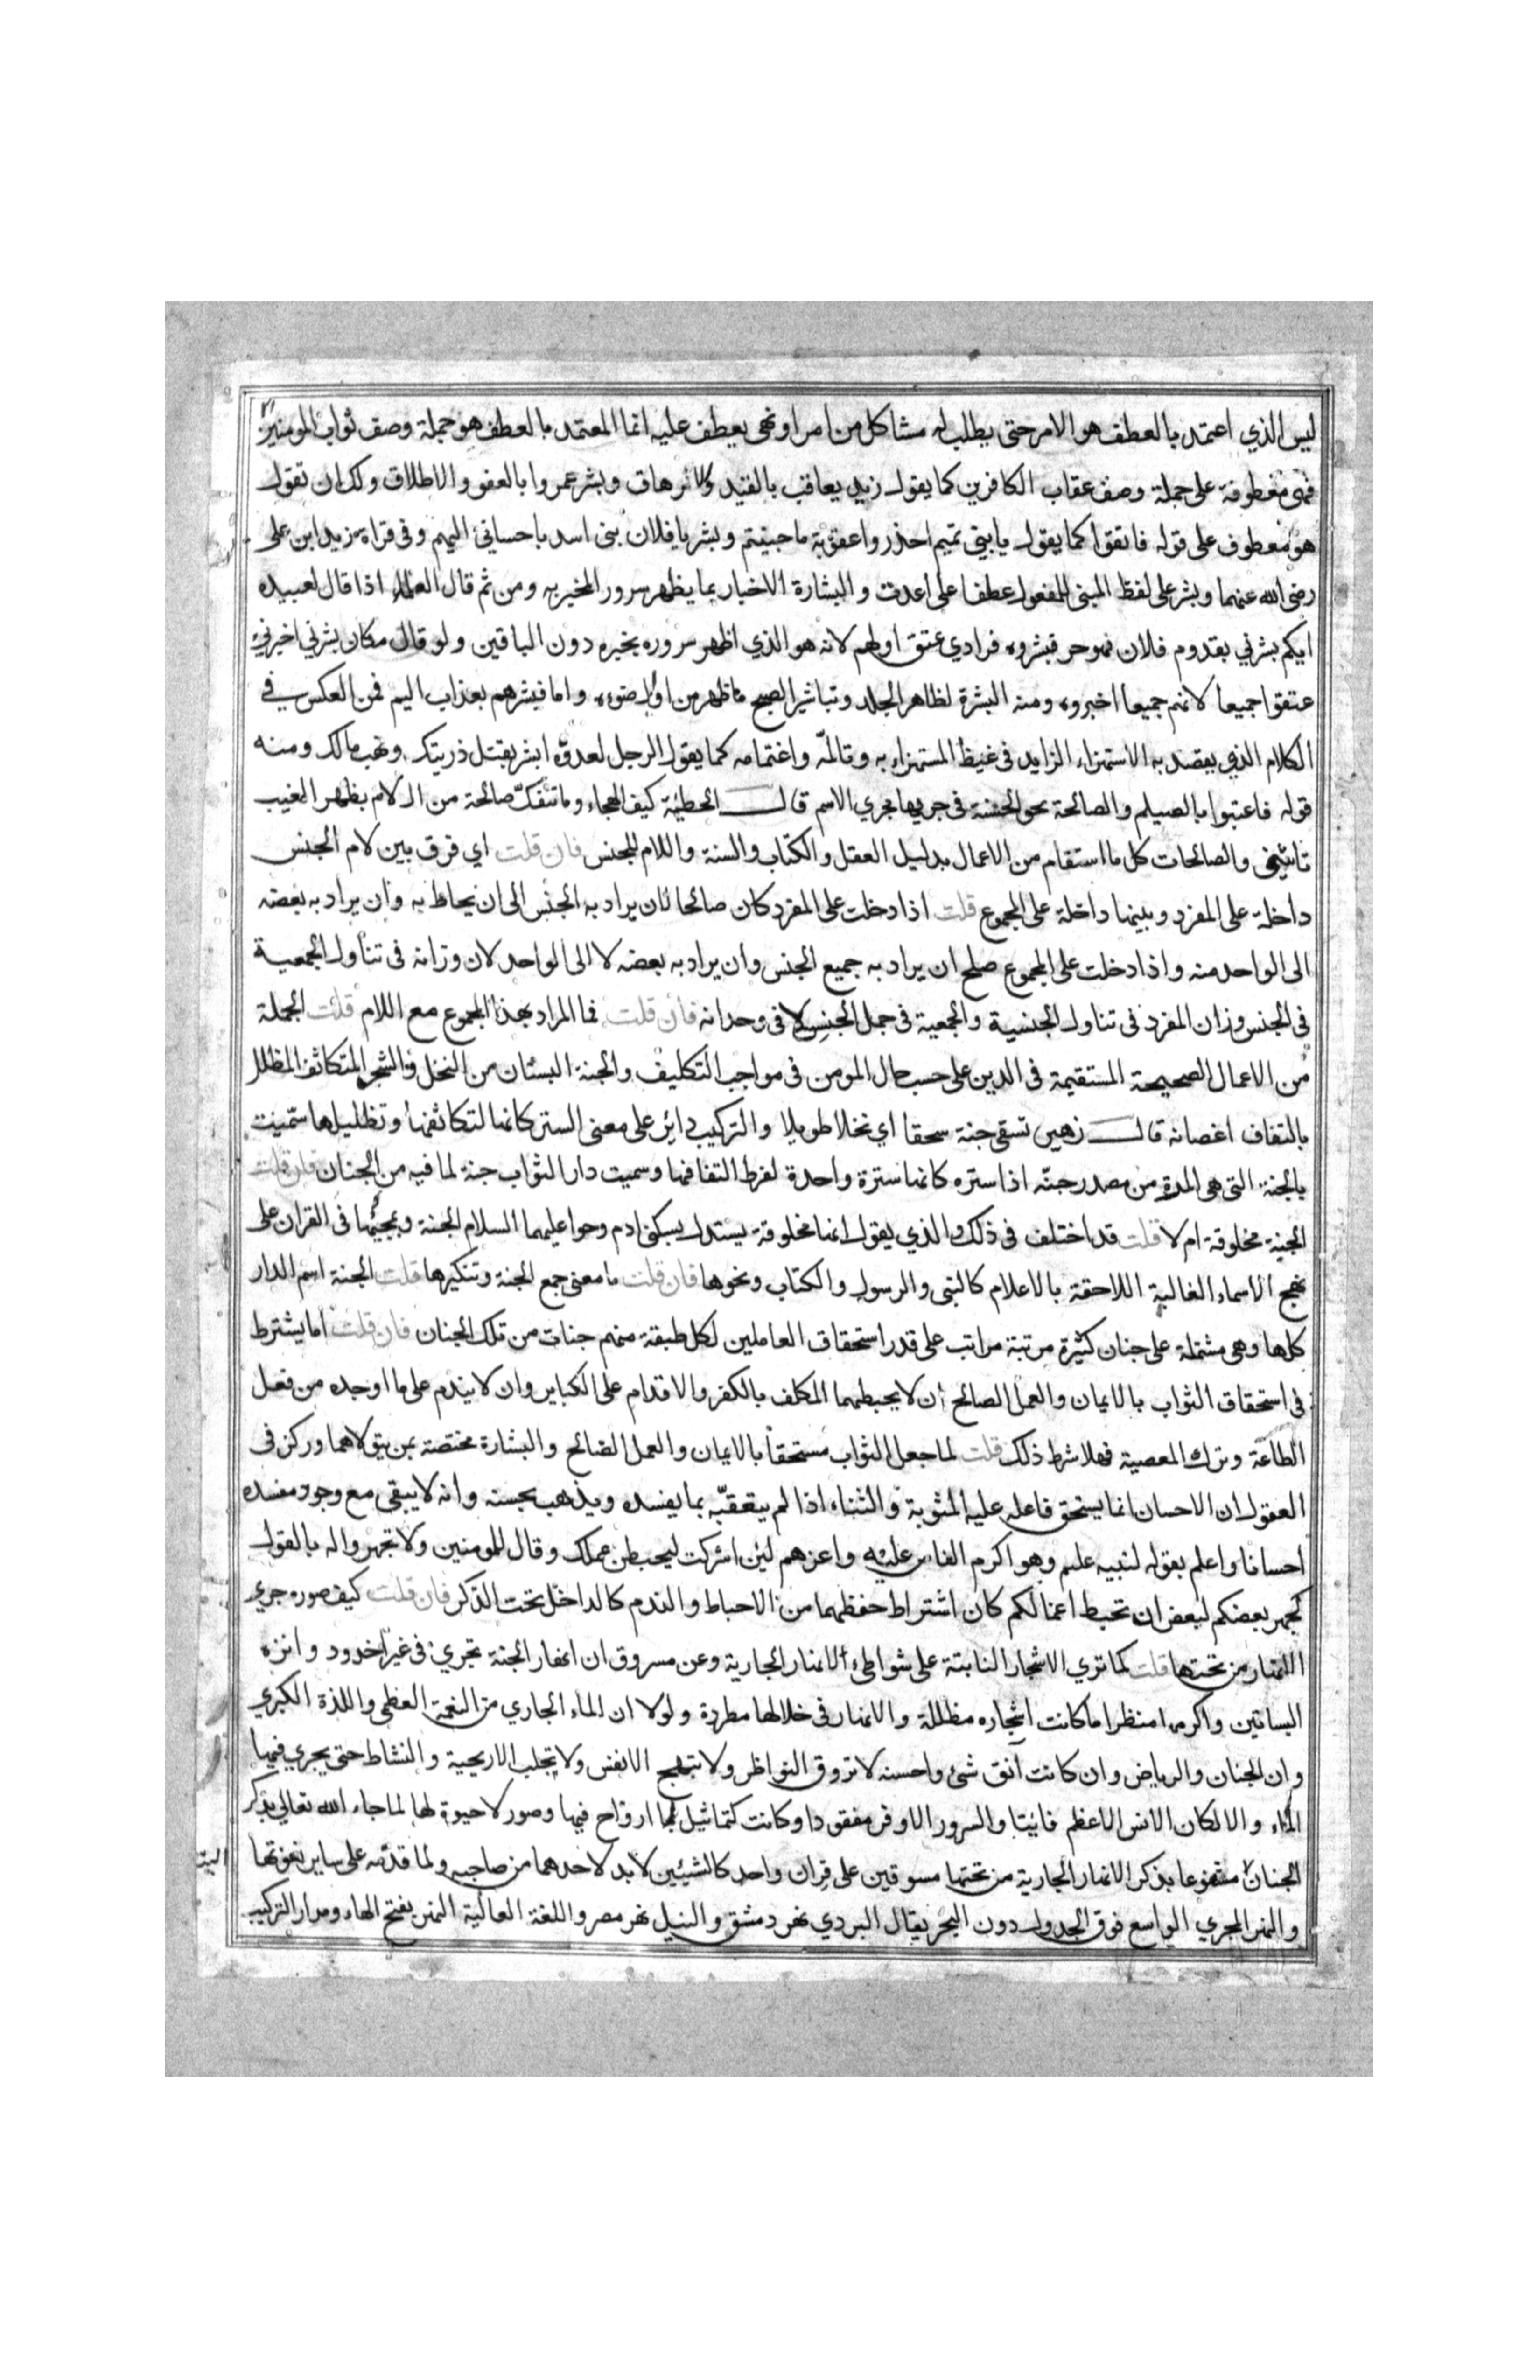 ليس الذي اعتمد بالعطف هو الامر حتى يطلب له مشاكل من امر او نهى يعطف عليه انما المعتمد بالعطف هو جملة وصف ثواب المومنين
فهى معطوفة على جملة وصف عقاب الكافرين كما يقول زيد يعاقب بالقيد والارهاق وبشر عمروا بالعفو والاطلاق ولك ان تقول
هو معطوف على قوله فاتقوا كما يقول يا بنى تميم احذروا عقوبة ما جنيتم وبشر يا فلان بنى اسد باحسانى اليهم وفى قراة زيد ابن على
رضى الله عنهما وبشر على لفظ المبنى للمفعول عطفا على اعدت والبشارة الاخبار بما يظهر سرور المخبر به ومن ثم قال العلماء اذا قال لعبيده
ايكم بشرني بقدوم فلان فهو حر فبشروه فرادي عتق اولهم لانه هو الذي اظهر سروره بخبره دون الباقين ولو قال مكان بشرني اخبرني
عتقوا جميعا لانهم جميعا اخبروه ومنه البشرة لظاهر الجلد وتباشير الصبح ما ظهر من اوايل ضوءه واما فبشرهم بعذاب اليم فمن العكس في
الكلام الذي يقصد به الاستهزاء الزايد فى غيظ المستهزاء به وتالمه واغتمامه كما يقول الرجل لعدوه ابشر بقتل ذريتك ونهب مالك ومنه
قوله فاعتبوا بالصيلم والصالحة نحو الحسنة فى جريها مجري الاسم قال الحطيئة كيف الهجاء وما تنفك صالحة من ال لام بظهر الغيب
تاتيني والصالحات كل ما استقام من الاعمال بدليل العقل والكتاب والسنة واللام للجنس فان قلت اي فرق بين لام الجنس
داخلة على المفرد وبينها داخلة على المجموع قلت اذا دخلت على المفرد كان صالحا لان يراد به الجنس الى ان يحاط به وان يراد به بعضه
الى الواحد منه واذا دخلت على المجموع صلح ان يراد به جميع الجنس وان يراد به بعضه لا الى الواحد لان وزانه فى تناول الجمعية
فى الجنس وزان المفرد فى تناول الجنسية والجمعية فى جمل الجنس لا فى وحدانه فان قلت فما المراد بهذا المجموع مع اللام قلت الجملة
من الاعمال الصحيحة المستقيمة فى الدين على حسب حال المومن فى مواجب التكليف والجنة البستان من النخل والشجر المتكاثف المظلل
بالتفاف اغصانه قال زهير تسقى جنة سحقا اي نخلا طويلا والتركيب داير على معنى الستر كانها لتكاثفها وتظليلها سميت
بالجنة التى هى المرة من مصدر جنه اذا ستره كانها سترة واحدة لفرط التفافها وسميت دار الثواب جنة لما فيه من الجنان فان قلت
الجنة مخلوقة ام لا قلت قد اختلف فى ذلك والذي يقول انها مخلوقة يستدل بسكنى ادم وحوا عليهما السلام الجنة وبمجيئها فى القران على
نهج الاسماء الغالبة اللاحقة بالاعلام كالنبى والرسول والكتاب ونحوها فان قلت ما معنى جمع الجنة وتنكيرها قلت الجنة اسم الدار
كلها وهى مشتملة على جنان كثيرة مرتبة مراتب على قدر استحقاق العاملين لكل طبقة منهم جنات من تلك الجنان فان قلت اما يشترط
فى استحقاق الثواب بالايمان والعمل الصالح ان لا يحبطهما المكلف بالكفر والاقدام على الكباير وان لا يندم على ما اوجده من فعل
الطاعة وترك المعصية فهلا شرط ذلك قلت لما جعل الثواب مستحقا بالايمان والعمل الصالح والبشارة مختصة بمن يتولاهما وركز فى
العقول ان الاحسان انما يستحق فاعله عليه المثوبة والثناء اذا لم يتعقبه بما يفسده ويذهب بحسنه وانه لا يبقى مع وجود مفسده
احسانا واعلم بقوله لنبيه علم وهو اكرم الناس عليه واعزهم لئن اشركت ليحبطن عملك وقال للمومنين ولا تجهروا له بالقول
كجهر بعضكم لبعض ان تحبط اعمالكم كان اشتراط حفظهما من الاحباط والندم كالداخل تحت الذكر فان قلت كيف صوره جري
الانهار من تحتها قلت كما تري الاشجار النابتة على شواطئ الانهار الجارية وعن مسروق ان انهار الجنة تجري فى غير اخدود وانزه
البساتين واكرمها منظرا ما كانت اشجاره مظللة والانهار فى خلالها مطردة ولولا ان الماء الجاري من النعمة العظمى واللذة الكبري
وان الجنان والرياض وان كانت آنق شئ واحسنه لا تروق النواظر ولا تبهج الانفس ولا تجلب الاريحية والنشاط حتى يجري فيها
الماء والا لكان الانس الاعظم فائيتا والسرور الاوفر مفقودا وكانت كتماثيل لا ارواح فيها وصور لا حيوة لها لما جاء الله تعالى بذكر
الجنان مشفوعا بذكر الانهار الجارية من تحتها مسوقين على قران واحد كالشيئين لا بد لاحدهما من صاحبه ولما قدمه على ساير نعوتها
والنهر المجري الواسع فوق الجدول دون البحر يقال البردي نهر دمشق والنيل نهر مصر واللغة العالية النهر بفتح الهاء ومدار التركيب